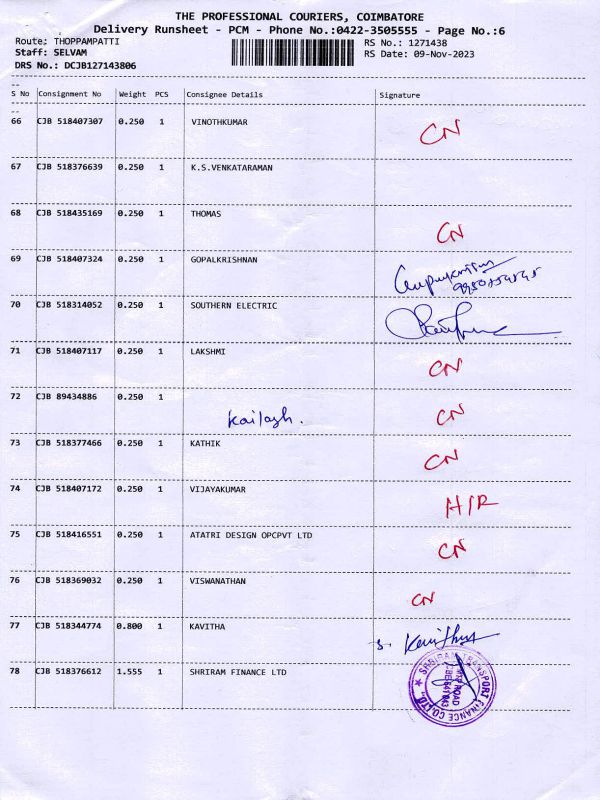 THE PROFESSIONAL COURIERS, COIMBATORE
Delivery Runsheet - PCM - Phone No.:0422-3505555 - Page No.:6
Route: THOPPAMPATTI RS No.: 1271438
Staff: SELVAM RS Date: 09-Nov-2023
DRS No.: DCJB127143806
--
S No Consignment No Weight PCS Consignee Details Signature
--
66 CJB 518407307 0.250 1 VINOTHKUMAR CN
67 CJB 518376639 0.250 1 K.S.VENKATARAMAN
68 CJB 518435169 0.250 1 THOMAS CN
69 CJB 518407324 0.250 1 GOPALKRISHNAN
70 CJB 518314052 0.250 1 SOUTHERN ELECTRIC
71 CJB 518407117 0.250 1 LAKSHMI CN
72 CJB 89434886 0.250 1
Kailash. CN
73 CJB 518377466 0.250 1 KATHIK CN
74 CJB 518407172 0.250 1 VIJAYAKUMAR H/R
75 CJB 518416551 0.250 1 ATATRI DESIGN OPCPVT LTD CN
76 CJB 518369032 0.250 1 VISWANATHAN CN
77 CJB 518344774 0.800 1 KAVITHA
78 CJB 518376612 1.555 1 SHRIRAM FINANCE LTD
SHRIRAM TRANSPORT FINANCE CO.LTD